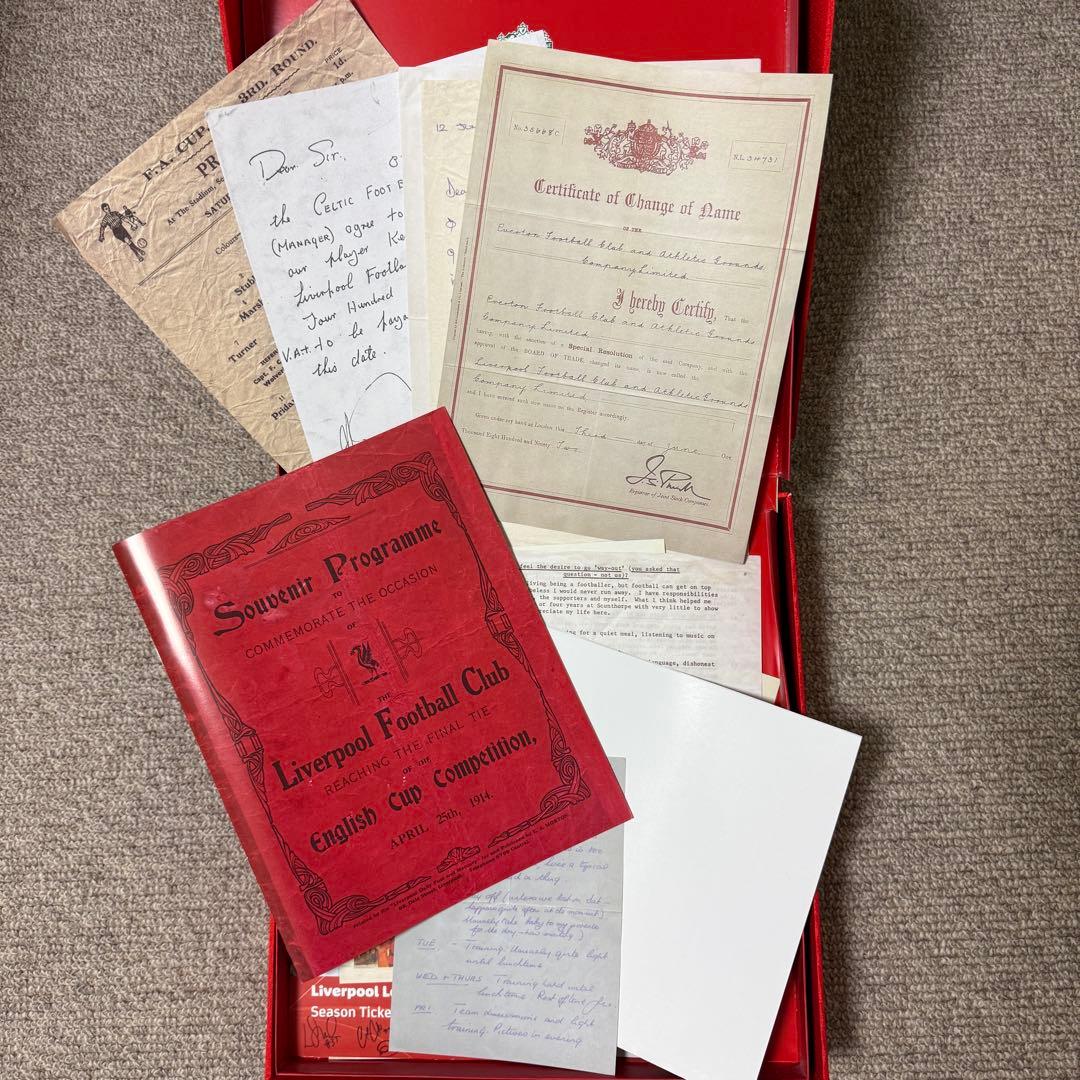 3RD. ROUND.
F.A. CUP
PRICE
1d.
p.m.
PR
At The Stadium, Sc
SATU
Colours
Stub
Mars
Turner
Capt. F. C
Prida
Dear Sir,
the CELTIC FOOTB
(MANAGER) agree to
our player Ke
Liverpool Footba
Four Hundred
V.A.T. to be paya
this date.
12
Dea
No. 35668C
N.L. 34731
Certificate of Change of Name
OF THE
Everton Football Club and Athletic Grounds
Company Limited
I hereby Certify, That the
Everton Football Club and Athletic Grounds
Company Limited
having, with the sanction of a Special Resolution of the said Company, and with the
approval of the BOARD OF TRADE, changed its name, is now called the
Liverpool Football Club and Athletic Grounds
Company Limited
and I have entered such new name on the Register accordingly.
Given under my hand at London this Third day of June One
Thousand Eight Hundred and Ninety Two
Registrar of Joint Stock Companies.
feel the desire to go 'way-out' (you asked that
question - not us)?
living being a footballer, but football can get on top
eless I would never run away. I have responsibilities
the supporters and myself. What I think helped me
or four years at Scunthorpe with very little to show
reciate my life here.
ng for a quiet meal, listening to music on
language, dishonest
Souvenir Programme
TO
COMMEMORATE THE OCCASION
OF
THE
Liverpool Football Club
REACHING THE FINAL TIE
OF THE
English Cup Competition,
APRIL 25th, 1914.
Printed by the "Liverpool Daily Post and Mercury"
a typical
off (unless we
for the day
TUE. - Training. Usually quite light
until lunchtime
WED + THURS Training hard until
lunchtime Rest of time
FRI Team discussions and light
training. Pictures in evening
Liverpool L
Season Ticke